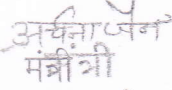 अर्चना जैन
मंत्री श्री